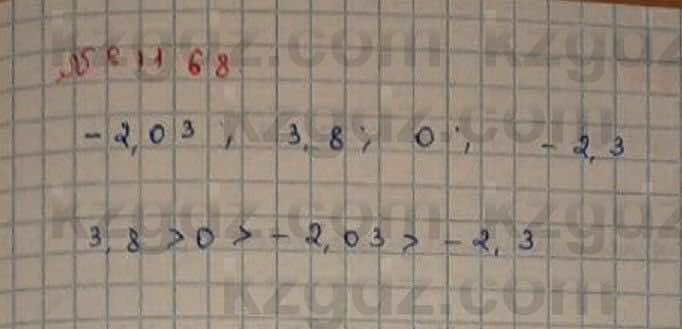 kzgdz.com kzgdz
№ 1168
kzgdz.com
- 2,03 ; 3,8 ; 0 ; - 2,3
kzgdz.com kzgdz
3,8 > 0 > - 2,03 > - 2,3
kzgdz.com